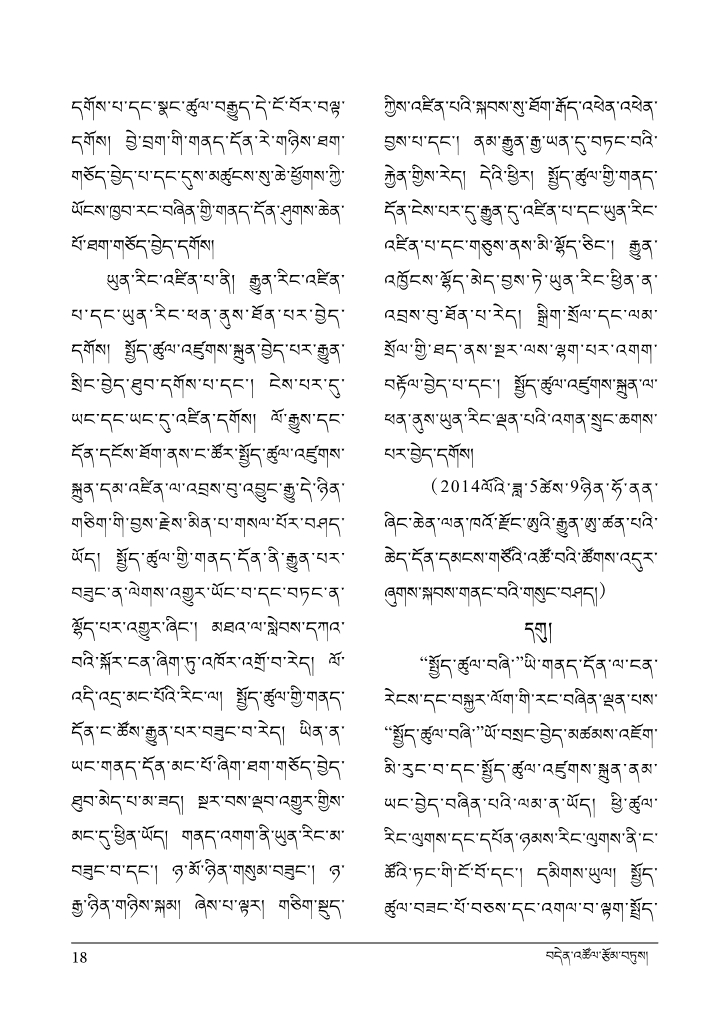 དགོས་པ་དང་སྣང་ཚུལ་བརྒྱུད་དེ་ངོ་བོར་བལྟ་
དགོས། བྱེ་བྲག་གི་གནད་དོན་རེ་གཉིས་ཐག་
གཅོད་བྱེད་པ་དང་དུས་མཚུངས་སུ་ཆེ་ཕྱོགས་ཀྱི་
ཡོངས་ཁྱབ་རང་བཞིན་གྱི་གནད་དོན་ཤུགས་ཆེན་
པོ་ཐག་གཅོད་བྱེད་དགོས།
ཡུན་རིང་འཛིན་པ་ནི། རྒྱུན་རིང་འཛིན་
པ་དང་ཡུན་རིང་ཕན་ནུས་ཐོན་པར་བྱེད་
དགོས། སྤྱོད་ཚུལ་འཛུགས་སྐྲུན་བྱེད་པར་རྒྱུན་
སྲིང་བྱེད་ཐུབ་དགོས་པ་དང་། ངེས་པར་དུ་
ཡང་དང་ཡང་དུ་འཛིན་དགོས། ལོ་རྒྱུས་དང་
དོན་དངོས་ཐོག་ནས་ང་ཚོར་སྤྱོད་ཚུལ་འཛུགས་
སྐྲུན་དམ་འཛིན་ལ་འབྲས་བུ་འབྱུང་རྒྱུ་དེ་ཉིན་
གཅིག་གི་བྱས་རྗེས་མིན་པ་གསལ་པོར་བཤད་
ཡོད། སྤྱོད་ཚུལ་གྱི་གནད་དོན་ནི་རྒྱུན་པར་
བཟུང་ན་ལེགས་འགྱུར་ཡོང་བ་དང་བཏང་ན་
ལྷོད་པར་འགྱུར་ཞིང་། མཐའ་ལ་སླེབས་དཀའ་
བའི་སྐོར་ངན་ཞིག་ཏུ་འཁོར་འགྲོ་བ་རེད། ལོ་
འདི་འདྲ་མང་པོའི་རིང་ལ། སྤྱོད་ཚུལ་གྱི་གནད་
དོན་ང་ཚོས་རྒྱུན་པར་བཟུང་བ་རེད། ཡིན་ན་
ཡང་གནད་དོན་མང་པོ་ཞིག་ཐག་གཅོད་བྱེད་
ཐུབ་མེད་པ་མ་ཟད། སྔར་བས་ལྡབ་འགྱུར་གྱིས་
མང་དུ་ཕྱིན་ཡོད། གནད་འགག་ནི་ཡུན་རིང་མ་
བཟུང་བ་དང་། ཉ་མོ་ཉིན་གསུམ་བཟུང་། ཉ་
རྒྱ་ཉིན་གཉིས་སྐམ། ཞེས་པ་ལྟར། གཅིག་སྡུད་
ཀྱིས་འཛིན་པའི་སྐབས་སུ་ཐོག་རྒོད་འཕེན་འཕེན་
བྱས་པ་དང་། ནམ་རྒྱུན་རྒྱ་ཡན་དུ་བཏང་བའི་
རྐྱེན་གྱིས་རེད། དེའི་ཕྱིར། སྤྱོད་ཚུལ་གྱི་གནད་
དོན་ངེས་པར་དུ་རྒྱུན་དུ་འཛིན་པ་དང་ཡུན་རིང་
འཛིན་པ་དང་གཅུས་ནས་མི་ལྷོད་ཅིང་། རྒྱུན་
འཁྱོངས་ལྷོད་མེད་བྱས་ཏེ་ཡུན་རིང་ཕྱིན་ན་
འབྲས་བུ་ཐོན་པ་རེད། སྒྲིག་སྲོལ་དང་ལམ་
སྲོལ་གྱི་ཐད་ནས་སྔར་ལས་ལྷག་པར་འགག་
བརྟོལ་བྱེད་པ་དང་། སྤྱོད་ཚུལ་འཛུགས་སྐྲུན་ལ་
ཕན་ནུས་ཡུན་རིང་ལྡན་པའི་འགན་སྲུང་ཆགས་
པར་བྱེད་དགོས།
(2014ལོའི་ཟླ་5ཚེས་9ཉིན་ཧོ་ནན་
ཞིང་ཆེན་ལན་ཁའོ་རྫོང་ཨུའི་རྒྱུན་ཨུ་ཚན་པའི་
ཆེད་དོན་དམངས་གཙོའི་འཚོ་བའི་ཚོགས་འདུར་
ཞུགས་སྐབས་གནང་བའི་གསུང་བཤད།)
དགུ།
“སྤྱོད་ཚུལ་བཞི་”ཡི་གནད་དོན་ལ་ངན་
རེངས་དང་བསྐྱར་ལོག་གི་རང་བཞིན་ལྡན་པས་
“སྤྱོད་ཚུལ་བཞི་”ཡོ་བསྲང་བྱེད་མཚམས་འཇོག་
མི་རུང་བ་དང་སྤྱོད་ཚུལ་འཛུགས་སྐྲུན་ནམ་
ཡང་བྱེད་བཞིན་པའི་ལམ་ན་ཡོད། ཕྱི་ཚུལ་
རིང་ལུགས་དང་དཔོན་ཉམས་རིང་ལུགས་ནི་ང་
ཚོའི་ཏང་གི་ངོ་བོ་དང་། དམིགས་ཡུལ། སྤྱོད་
ཚུལ་བཟང་པོ་བཅས་དང་འགལ་བ་ལྟག་སྤྲོད་
18
བདེན་འཚོལ་རྩོམ་བཏུས།